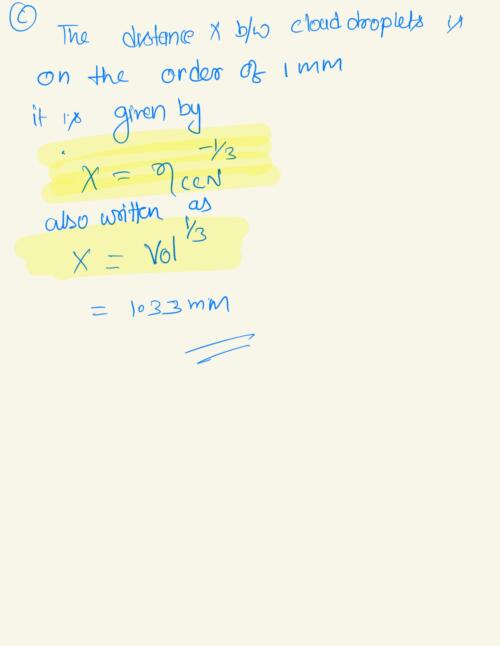 (c) The distance x b/w cloud droplets is
on the order of 1 mm
it is given by
X = η_CCN^(-1/3)
also written as
X = Vol^(1/3)
= 1.033 mm